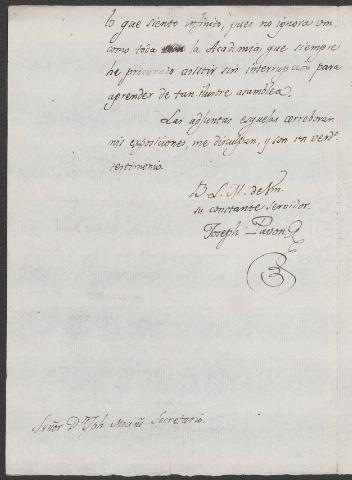 lo que siento infinito, pues no ignora vm.
como toda la Academia, que siempre
he procurado asistir sin interrupcion para
aprender de tan ilustre asamblea.
Las adjuntas esquelas corroboran
mis exposiciones, me disculpan, y son un verdo.
testimonio.
B. L. M. de Vm.
su constante servidor.
Joseph Pavon
Señor Dn. Secretario.